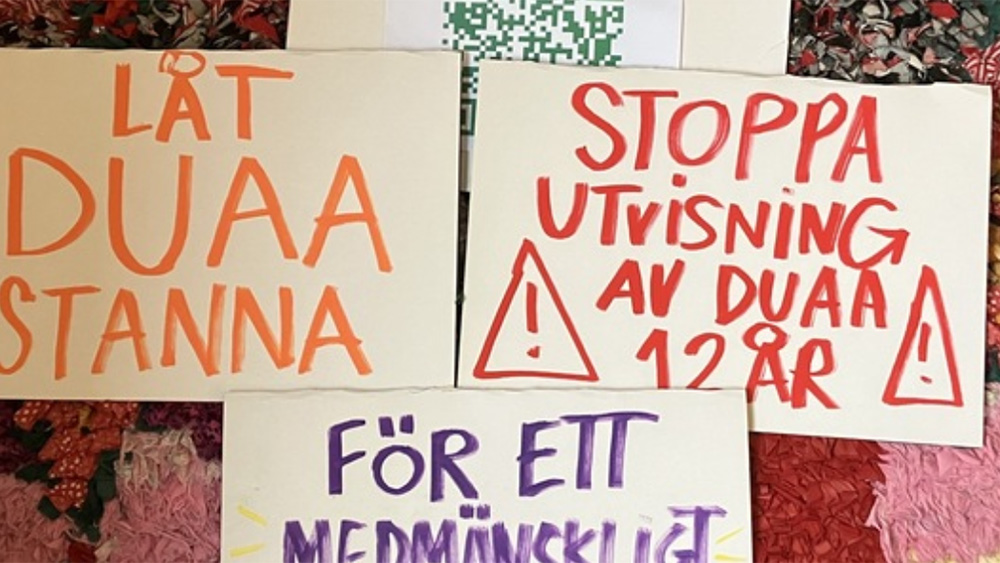 LÅT
DUAA
STANNA
STOPPA
UTVISNING
AV DUAA
12 ÅR
FÖR ETT
MEDMÄNSKLIGT